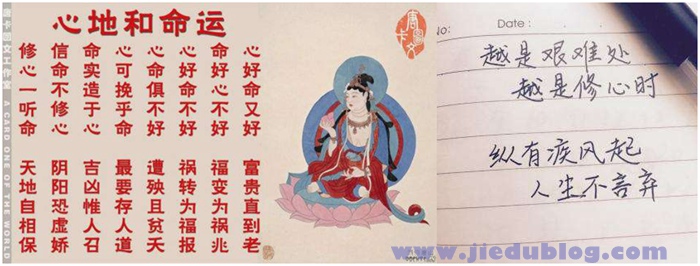 心地和命运
心好命又好 富贵直到老
命好心不好 福变为祸兆
心好命不好 祸转为福报
心命俱不好 遭殃且贫夭
心可挽乎命 最要存人道
命实造于心 吉凶惟人召
信命不修心 阴阳恐虚娇
修心一听命 天地自相保
唐卡图文工作室 A CARD ONE OF THE WORLD
唐卡图文
No: Date:
越是艰难处
越是修心时
纵有疾风起
人生不言弃
www.jiedublog.com